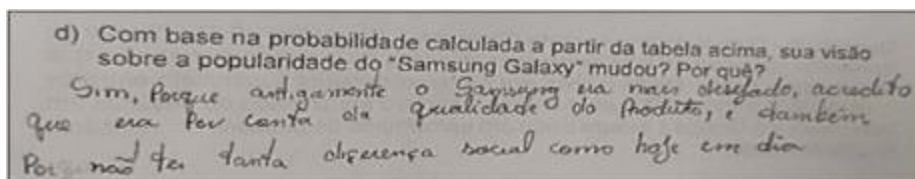 d) Com base na probabilidade calculada a partir da tabela acima, sua visão
sobre a popularidade do "Samsung Galaxy" mudou? Por quê?
Sim, Porque antigamente o Samsung era mais desejado, acredito
que era Por conta da qualidade do Produto, e também
Por não ter tanta diferença social como hoje em dia